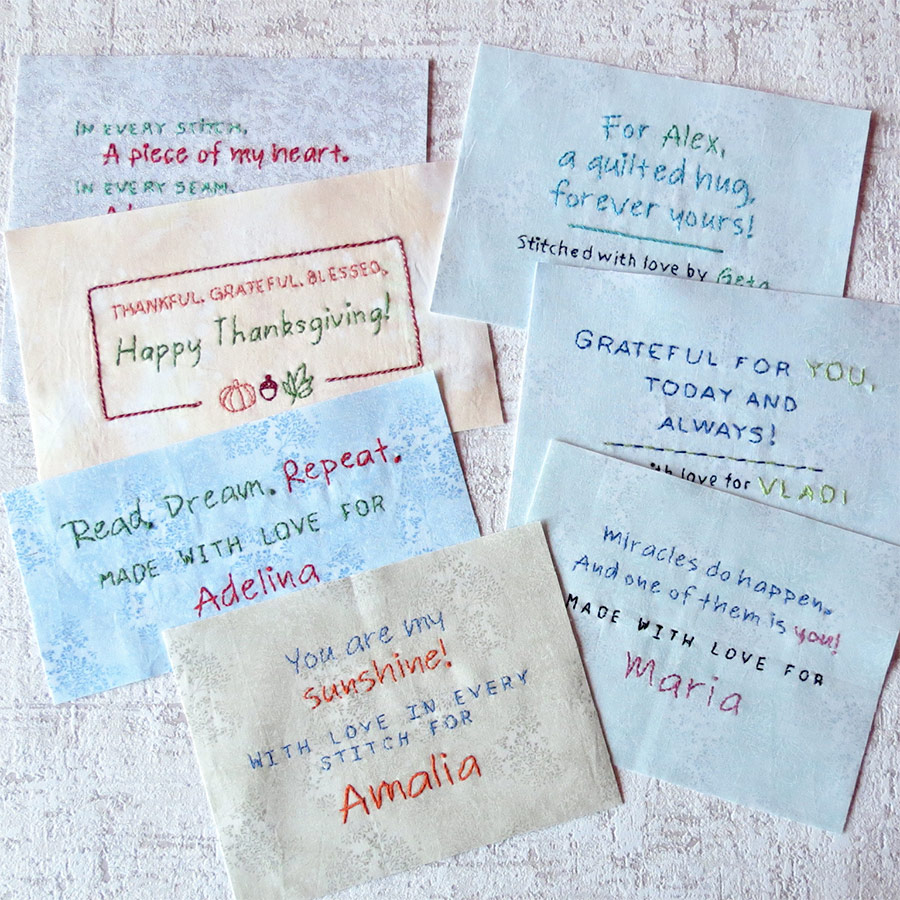 IN EVERY STITCH,
A piece of my heart.
IN EVERY SEAM,
THANKFUL. GRATEFUL. BLESSED.
Happy Thanksgiving!
Read. Dream. Repeat.
MADE WITH LOVE FOR
Adelina
You are my
sunshine!
WITH LOVE IN EVERY
STITCH FOR
Amalia
For Alex,
a quilted hug,
forever yours!
Stitched with love by Geta
GRATEFUL FOR YOU,
TODAY AND
ALWAYS!
with love for VLAD!
Miracles do happen.
And one of them is you!
MADE WITH LOVE FOR
Maria